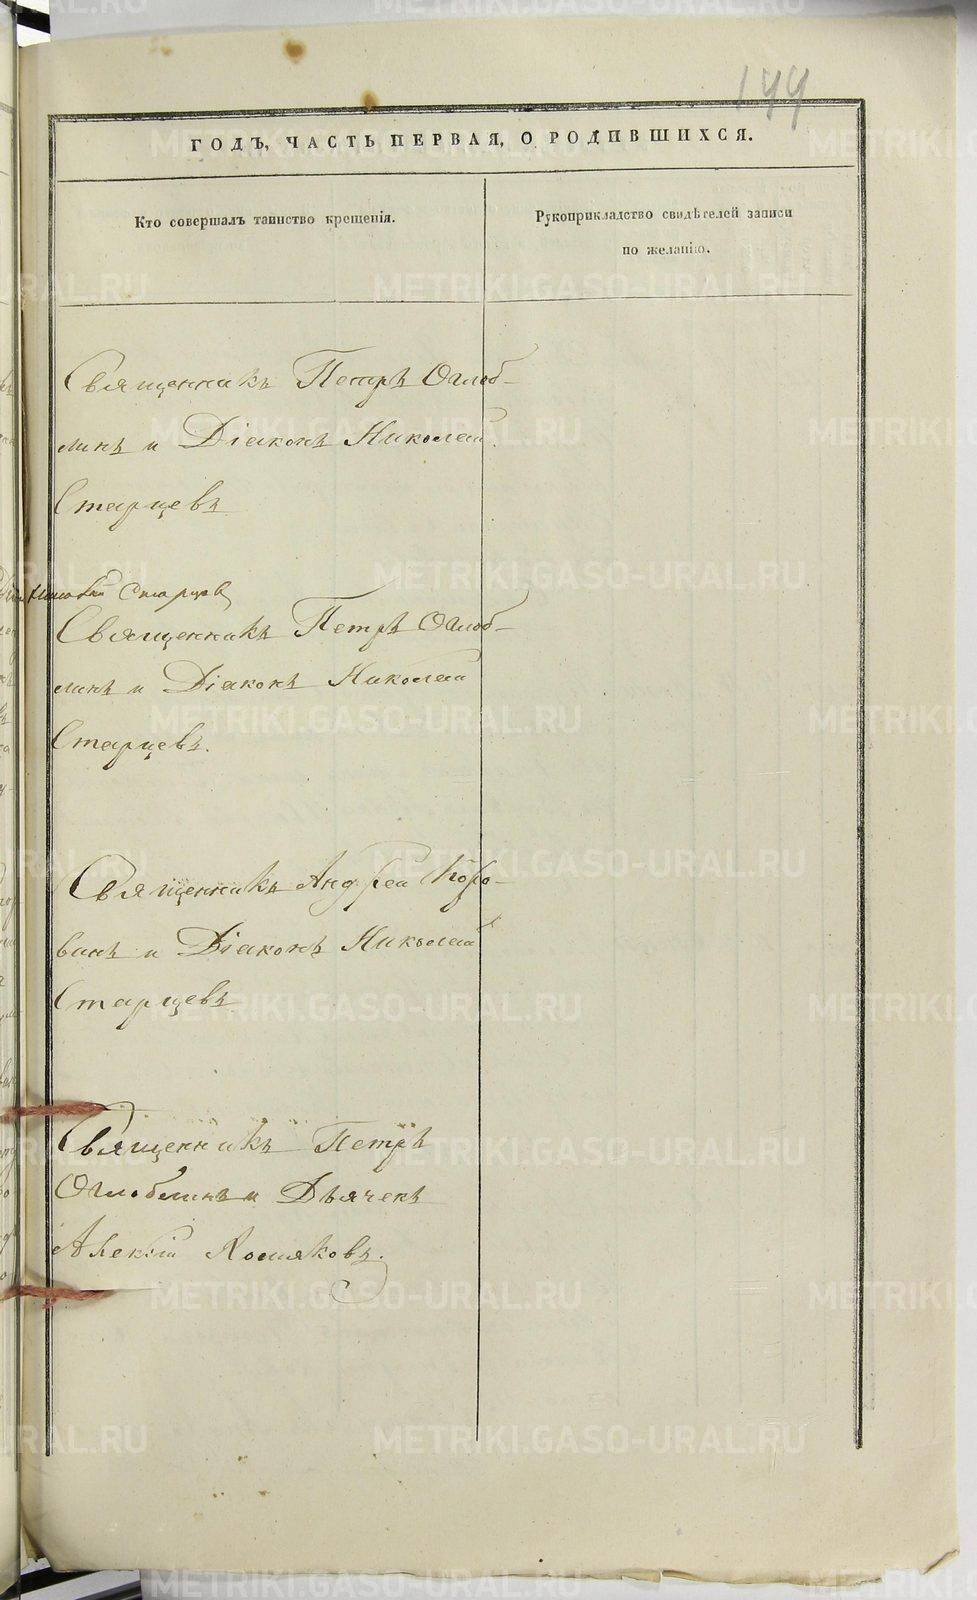 199
ГОДЪ, ЧАСТЬ ПЕРВАЯ, О РОДИВШИХСЯ.
Кто совершалъ таинство крещенія.
Рукоприкладство свидѣтелей записи
по желанію.
Священникъ Петръ Оглоб-
линъ и Діаконъ Николай
Старцевъ
Николай Старцев
Священникъ Петръ Оглоб-
линъ и Діаконъ Николай
Старцевъ.
Священникъ Андрей Коро-
винъ и Діаконъ Николай
Старцевъ
Священникъ Петръ
Оглоблинъ и Дьячекъ
Алексій
METRIKI.GASO-URAL.RU